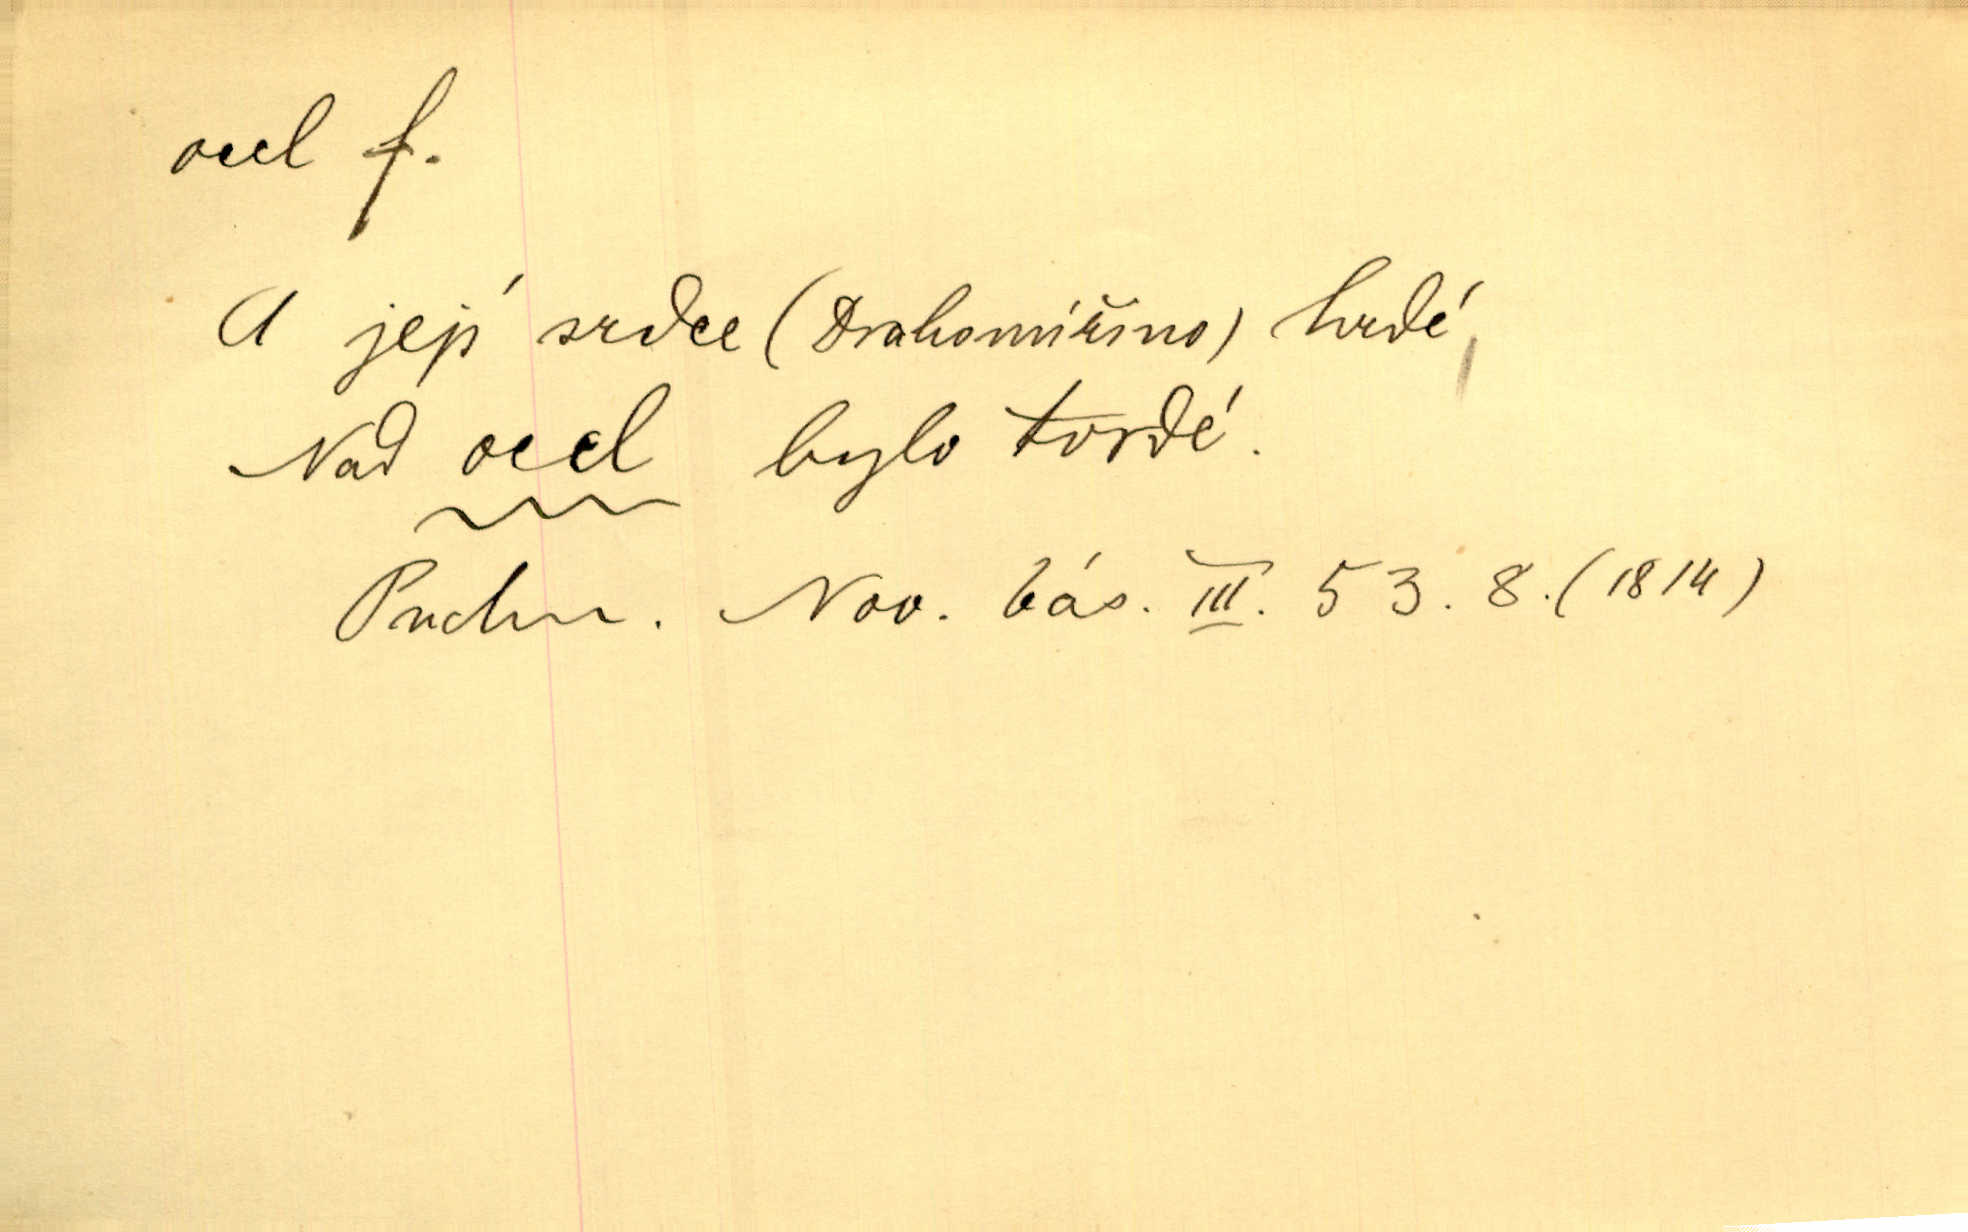 ocel f.
A její srdce (Drahomířino) hrdé,
Nad ocel bylo tvrdé.
Puchm. Nov. bás. III. 53. 8. (1814)